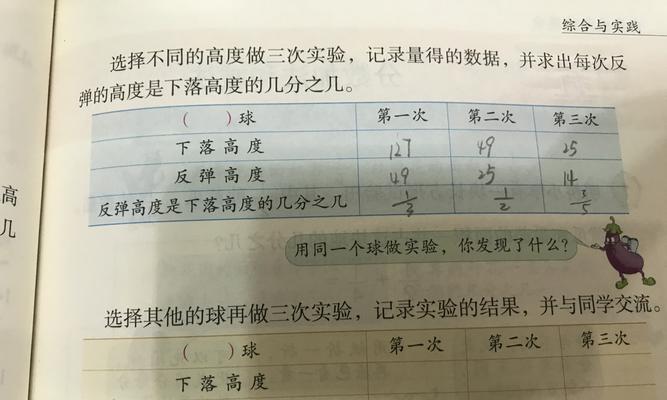 综合与实践
选择不同的高度做三次实验，记录量得的数据，并求出每次反
弹的高度是下落高度的几分之几。
（ ）球 第一次 第二次 第三次
下落高度 127 49 25
反弹高度 49 25 14
反弹高度是下落高度的几分之几 1/3 1/2 3/5
用同一个球做实验，你发现了什么？
高
几
选择其他的球再做三次实验，记录实验的结果，并与同学交流。
（ ）球 第一次 第二次 第三次
下落高度